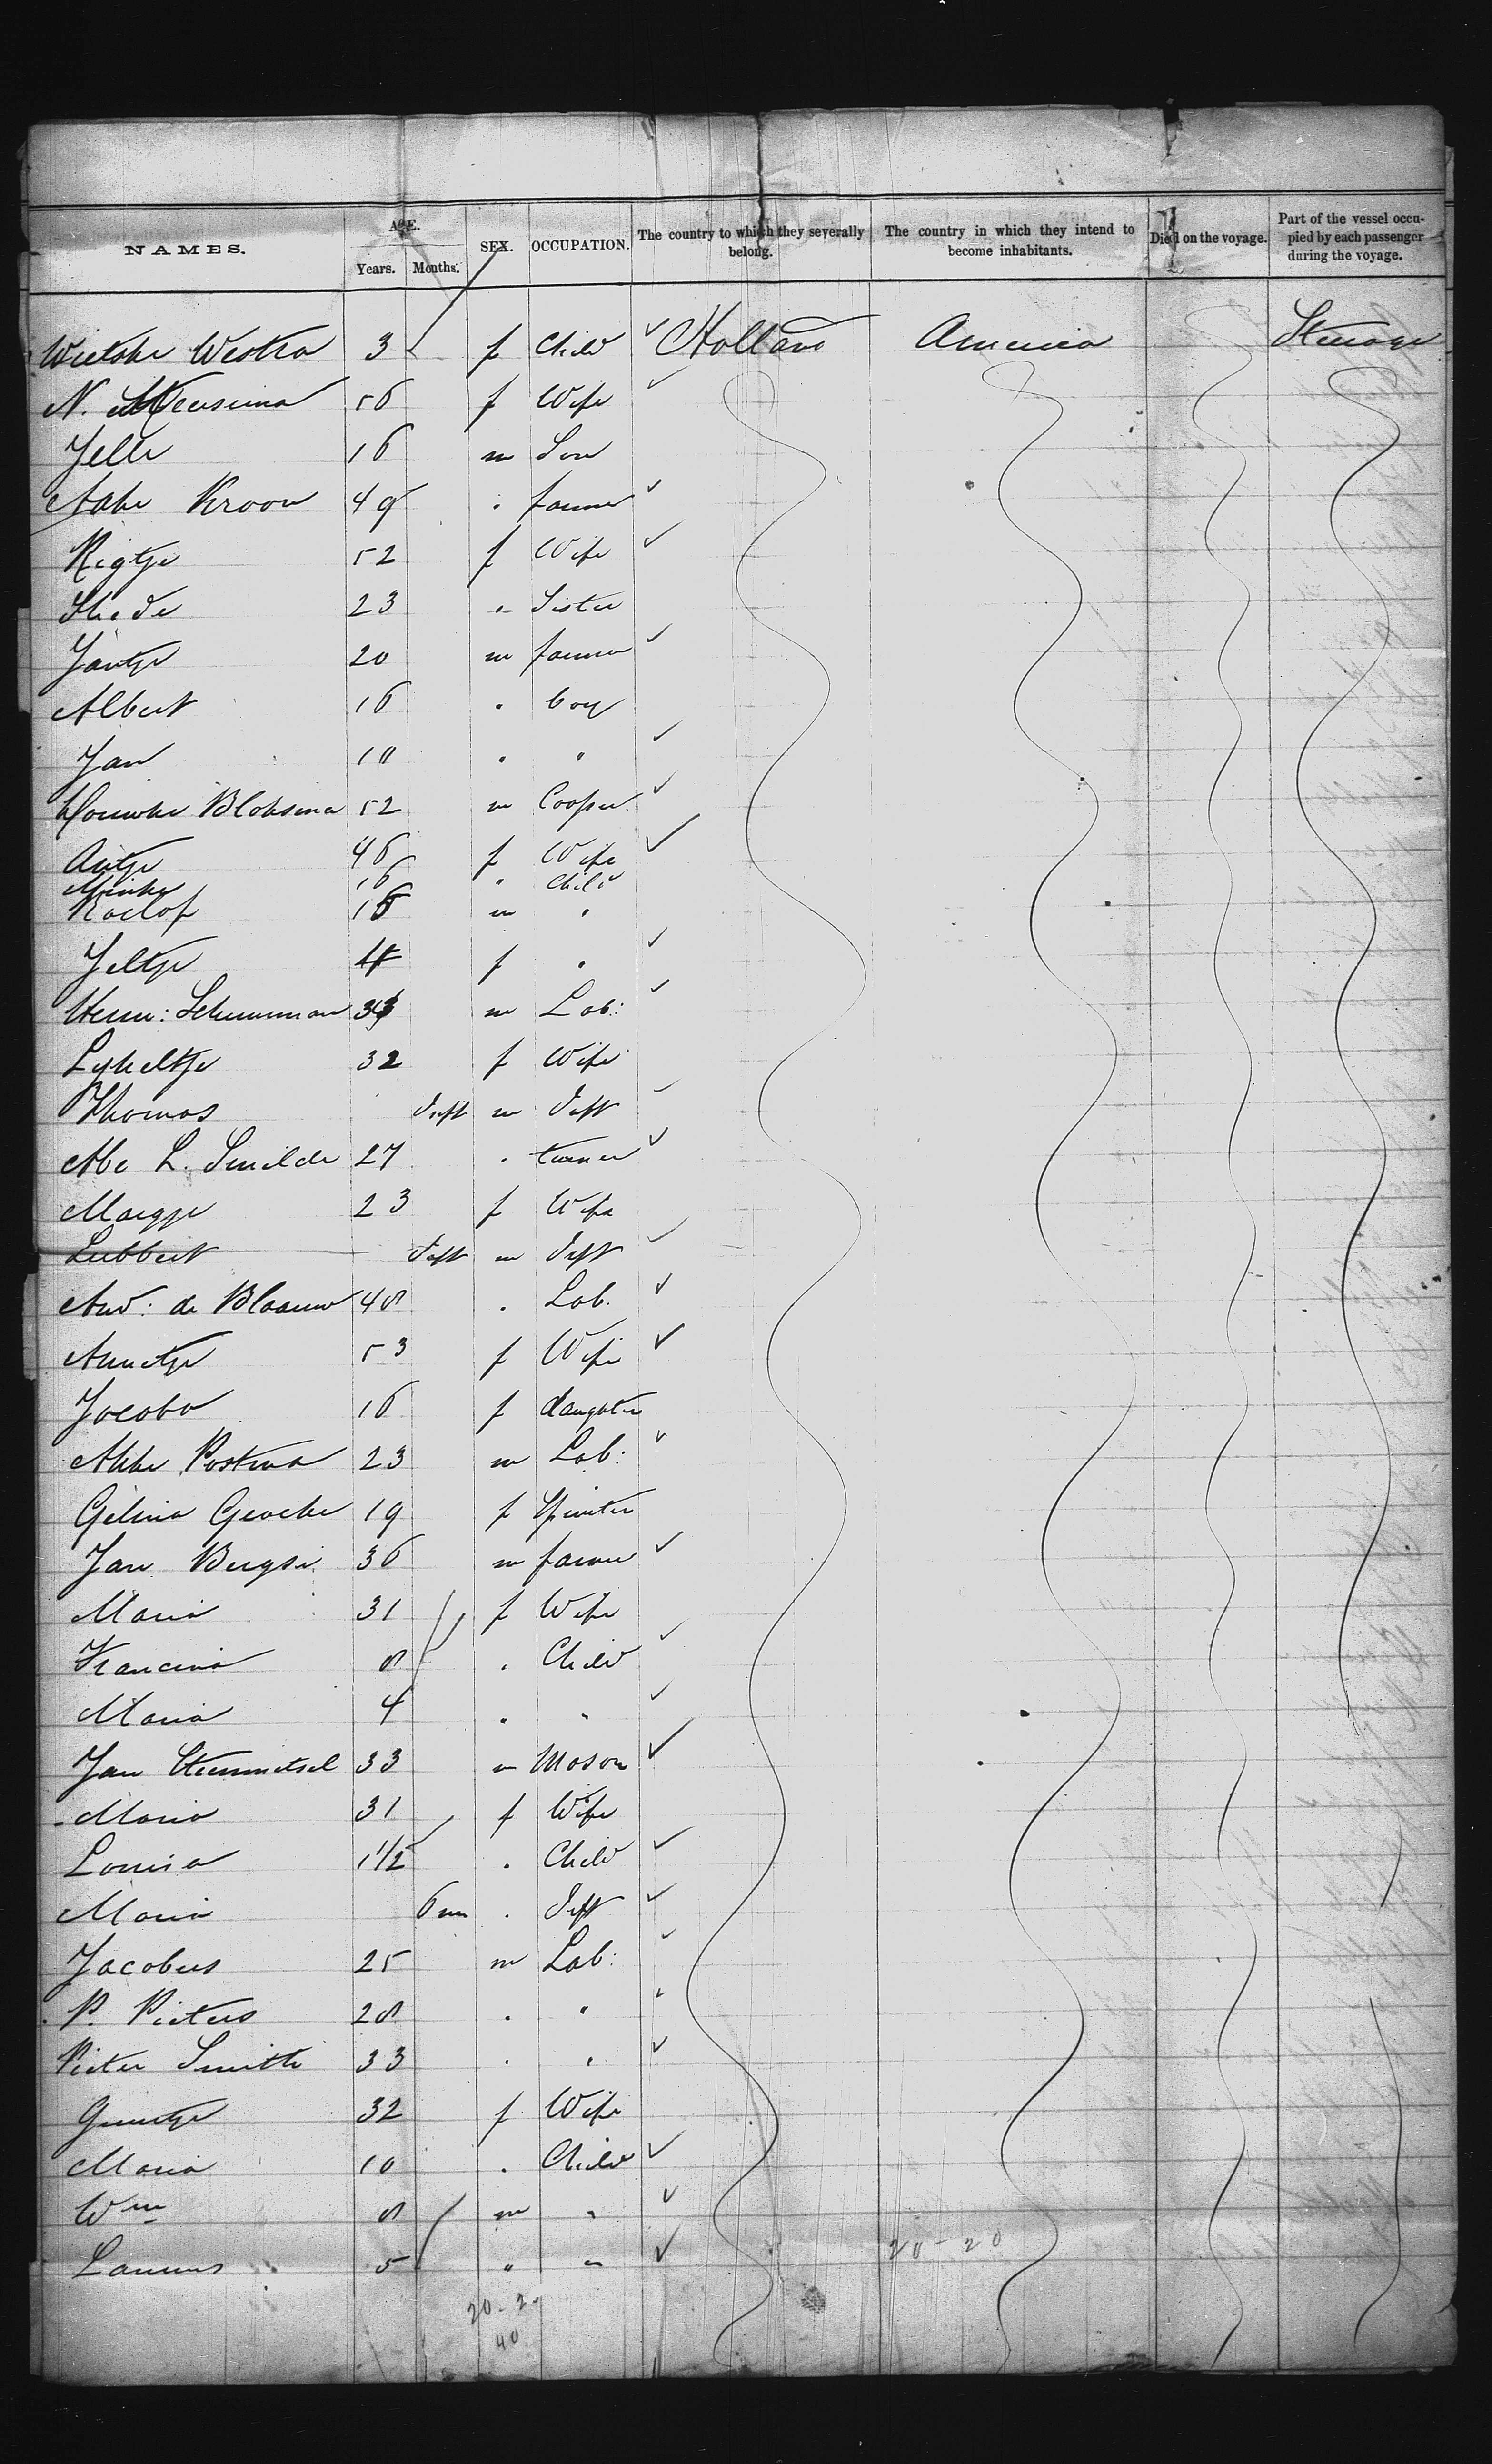 NAMES. AGE. Years. Months. SEX. OCCUPATION. The country to which they severally belong. The country in which they intend to become inhabitants. Died on the voyage. Part of the vessel occupied by each passenger during the voyage.
Wietske Westra 3 f Child Holland America Steerage
N. 56 f Wife
Jelle 16 m Son
Aake Kroon 49 " farmer
Rigtje 52 f Wife
23 " Sister
Jantje 20 m farmer
Albert 16 " boy
Jan 10 " "
Douwke Bloksma 52 m Cooper
Antje 46 f Wife
Minke 16 " Child
Roelof 15 m "
Jeltje 4 f "
Herm: Schuurman 33 m Lab:
Lykeltje 32 f Wife
Thomas Inft m Inft
Abe L. Smilde 27 " turner
Margje 23 f Wife
Lubbert Inft m Inft
And: de Blaauw 48 " Lab.
Annetje 53 f Wife
Jacoba 16 f daughter
Akke Postma 23 m Lab:
Gelina Geocke 19 f Spinster
Jan Bugsi 36 m farmer
Maria 31 f Wife
Francina 8 " Child
Maria 4 " "
Jan Steenmetsel 33 m Mason
Maria 31 f Wife
Louisa 1 1/2 " Child
Maria 6 m " Inft
Jacobus 25 m Lab:
P. Pieters 28 " "
Pieter Smith 33 " "
32 f Wife
Maria 10 " Child
Wm 8 m "
Laurens 5 " "
20-20
20-2
40